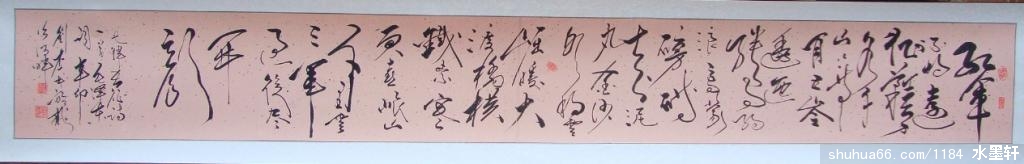 红军
不怕远
征难万
水千
山只等
闲五岭
逶迤
腾细
浪乌蒙
磅礴
走泥
丸金沙
水拍云
崖暖大
渡桥横
铁索寒
更喜岷山
千里雪
三军
过后尽
开
颜
shuhua66.com/1184 水墨轩